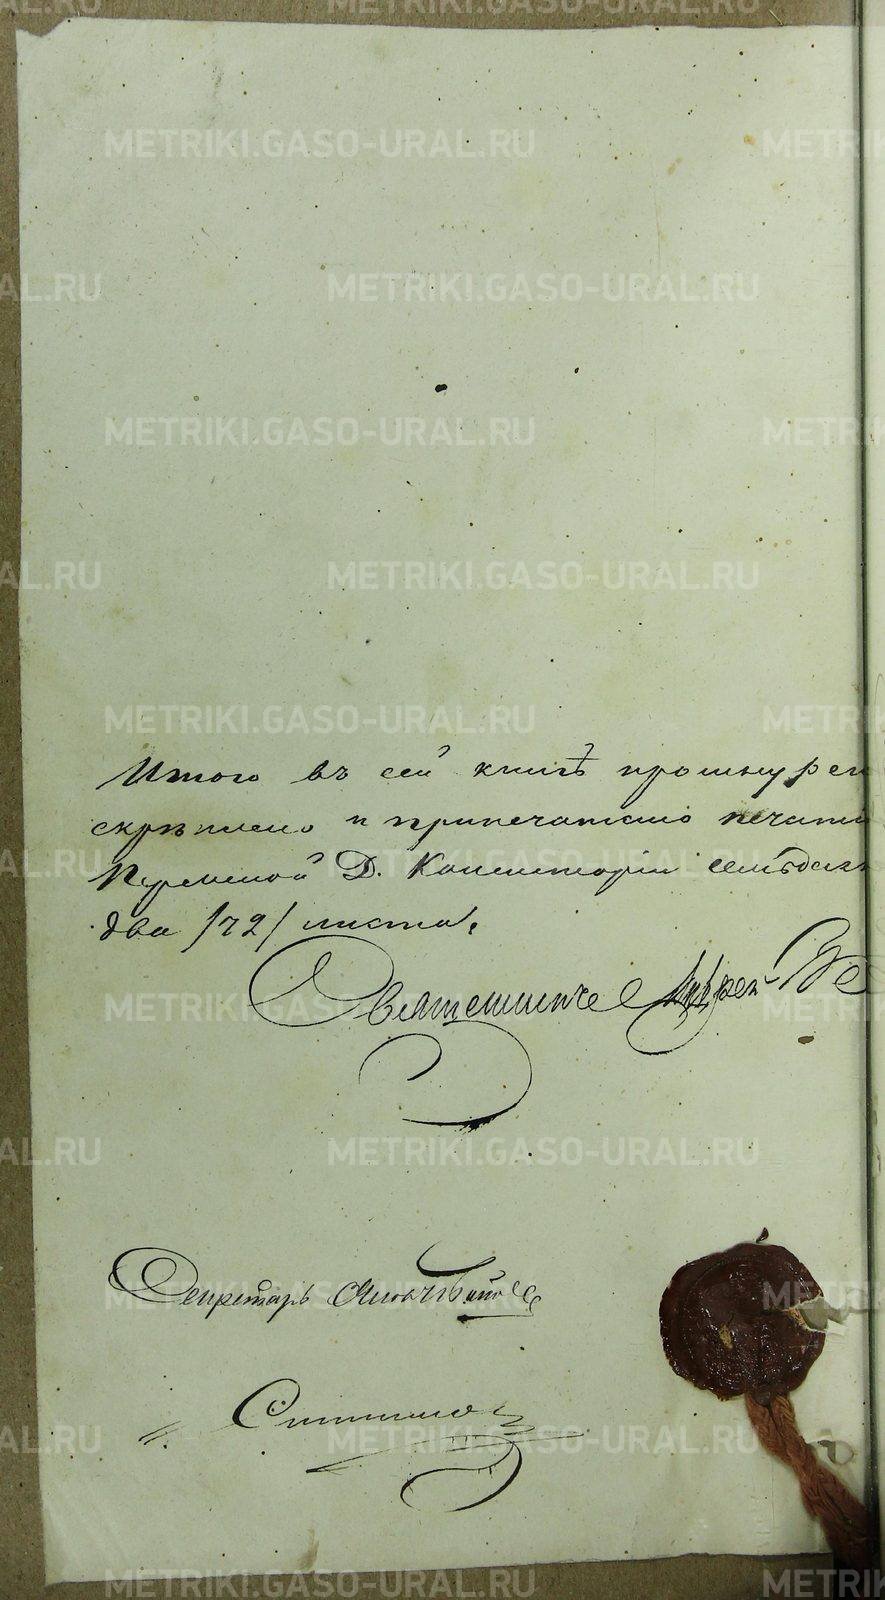 Итого въ сей книгѣ прошнурен
скрѣплено и припечатано печатью
Пермской Д. Консисторіи семьдесят
два /72/ листа.
Священникъ Андрей
Секретарь
METRIKI.GASO-URAL.RU